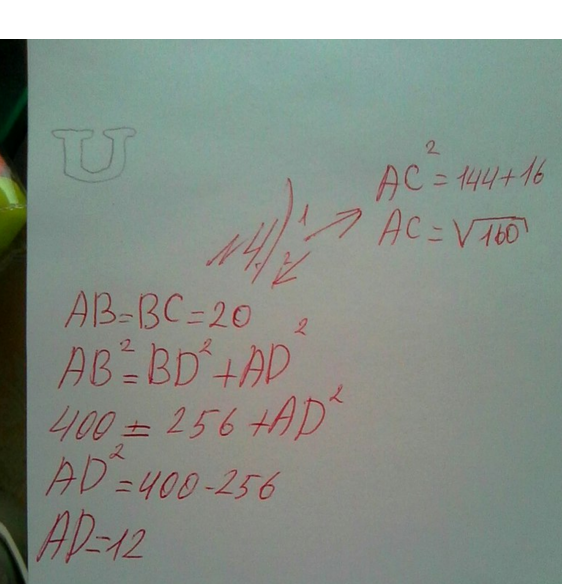 U
№4)
1
AC² = 144+16
AC = √160
2
AB=BC=20
AB²=BD²+AD²
400 = 256 +AD²
AD²=400-256
AD=12